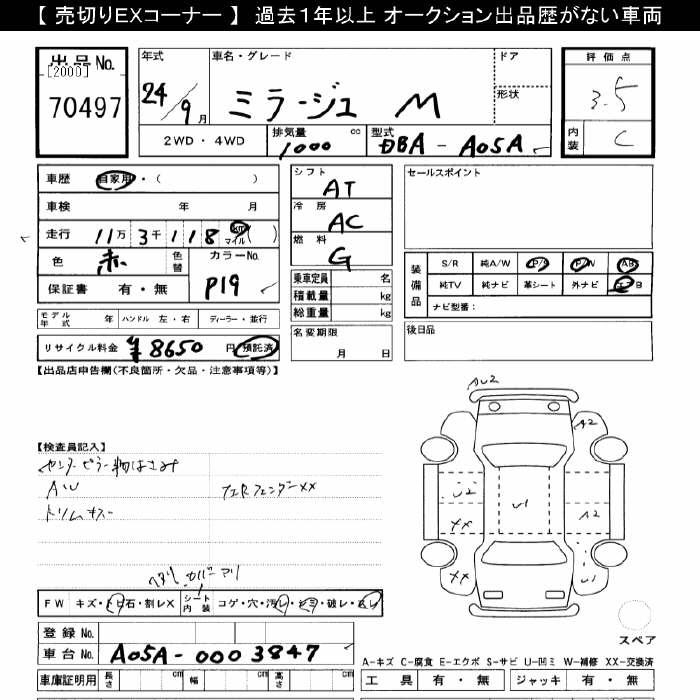 【 売切りEXコーナー 】 過去１年以上 オークション出品歴がない車両
出品 No.
[2000]
70497
年式
24/9月
車名・グレード
ミラージュ M
ドア
形状
2WD・4WD
排気量 cc
1000
型式
DBA - A05A
評価点
3.5
内装
C
車歴 自家用・( )
車検 年 月
走行 11万3千118 km マイル ( )
色 赤
色替
カラーNo.
P19
保証書 有・無
モデル年式 年 ハンドル 左・右 ディーラー・並行
リサイクル料金 ¥8650円 預託済
シフト
AT
冷房
AC
燃料
G
乗車定員 名
積載量 kg
総重量 kg
名変期限
月 日
セールスポイント
装備品
S/R 純A/W P/S P/W ABS
純TV 純ナビ 革シート 外ナビ エアB
ナビ型番：
後日品
【出品店申告欄(不良箇所・欠品・注意事項等)】
【検査員記入】
センターピラー物はさみ
AW
トリムキズ
AU2
A2
U2
XX
U1
A2
XX
U1
FW キズ・トビ石・割レX
シート内装
コゲ・穴・汚レ・シミ・破レ・
登録 No.
車台 No. A05A-0003847
車庫証明用 長さ cm 幅 cm 高さ cm
スペア
A-キズ C-腐食 E-エクボ S-サビ U-凹ミ W-補修 XX-交換済
工具 有・無 ジャッキ 有・無